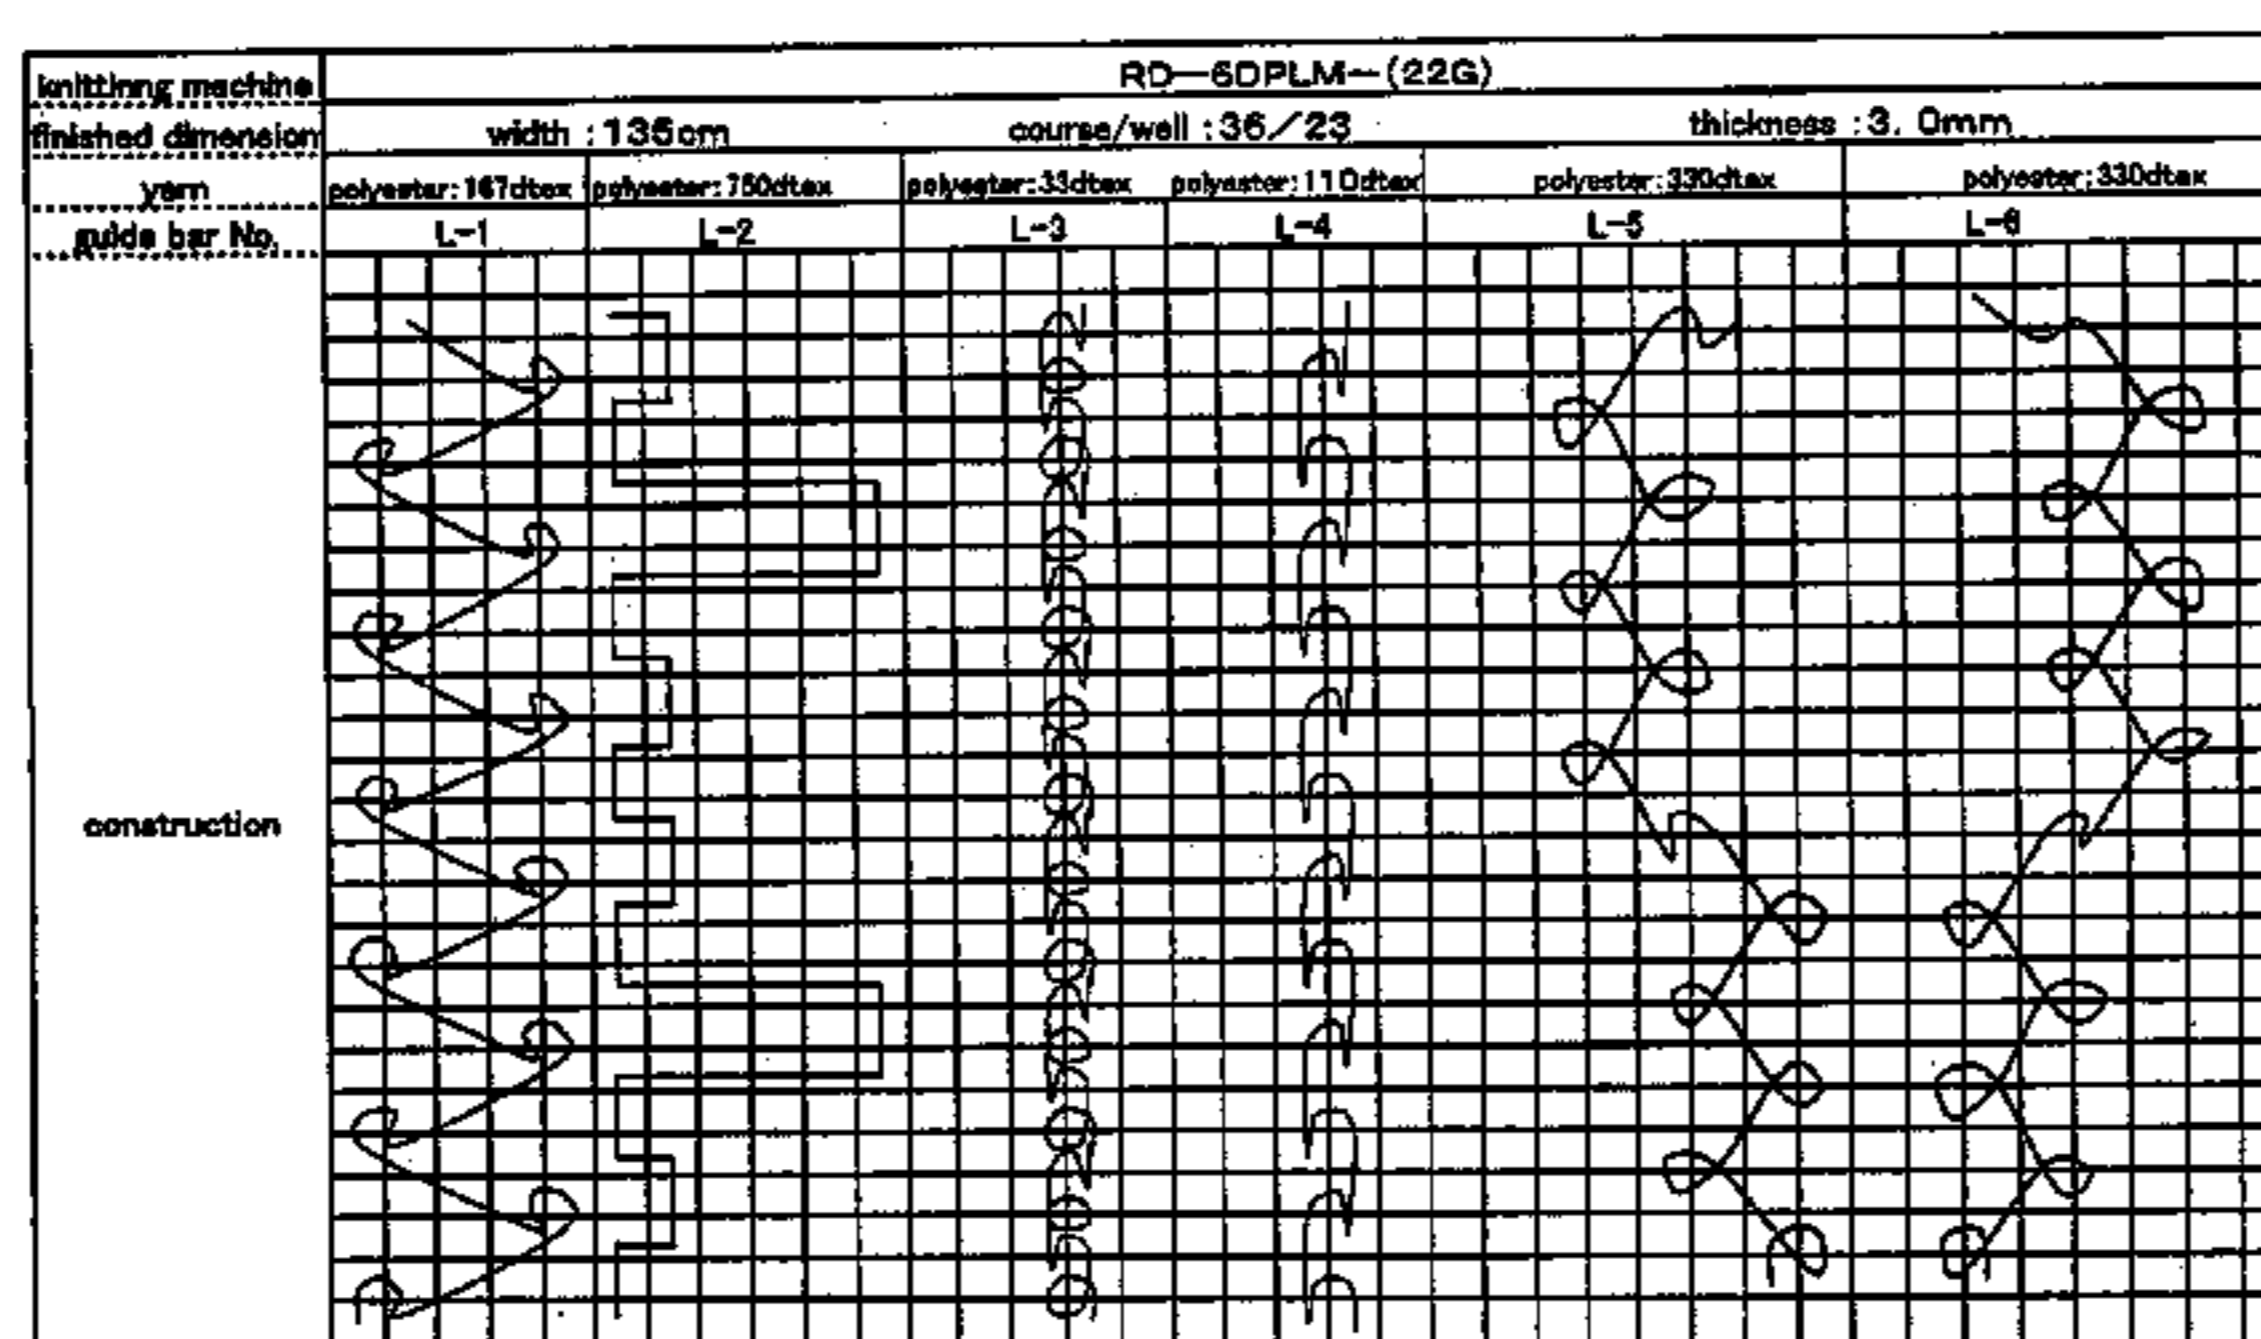 knittinng machine RD-6DPLM-(22G)
finished dimension width :135cm course/well :36/23 thickness :3. 0mm
yarn polyester:167dtex polyester:750dtex polyester:33dtex polyester:110dtex polyester:330dtex polyester:330dtex
guide bar No. L-1 L-2 L-3 L-4 L-5 L-6
construction